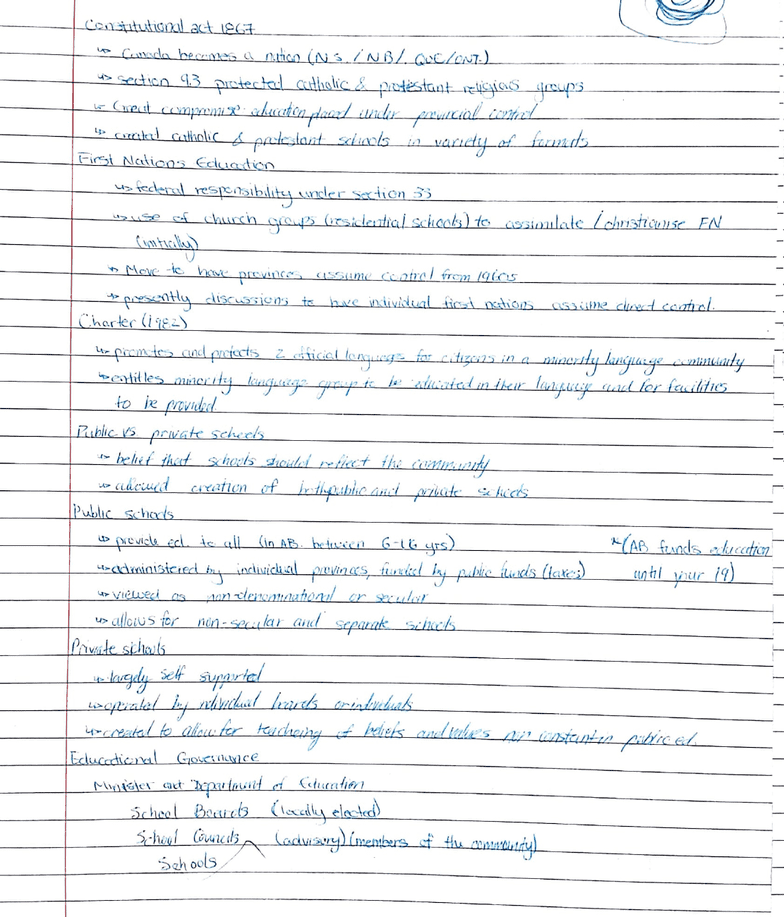 Constitutional act 1867
↳ Canada becomes a nation (N.S. / NB/. QUE/ONT.)
↳ section 93 protected catholic & protestant religious groups
↳ Great compromise- education placed under provincial control
↳ created catholic & protestant schools in variety of formats
First Nations Education
↳ federal responsibility under section 33
↳ use of church groups (residential schools) to assimilate / christianise FN
(initially)
↳ Move to have provinces assume control from 1960s
↳ presently discussions to have individual first nations assume direct control.
Charter (1982)
↳ promotes and protects 2 official language for citizens in a minority language community
↳ entitles minority language group to be educated in their language and for facilities
to be provided
Public vs private schools
↳ belief that schools should reflect the community
↳ allowed creation of both public and private schools
Public schools
↳ provide ed. to all (in AB. between 6-16 yrs) *(AB funds education
↳ administered by individual provinces, funded by public funds (taxes) until your 19)
↳ viewed as non-denominational or secular
↳ allows for non-secular and separate schools
Private schools
↳ largely self supported
↳ operated by individual boards or individuals
↳ created to allow for teaching of beliefs and values not constant in public ed.
Educational Governance
Minister Department of Education
School Boards (locally elected)
School Councils (advisory) (members of the community)
Schools